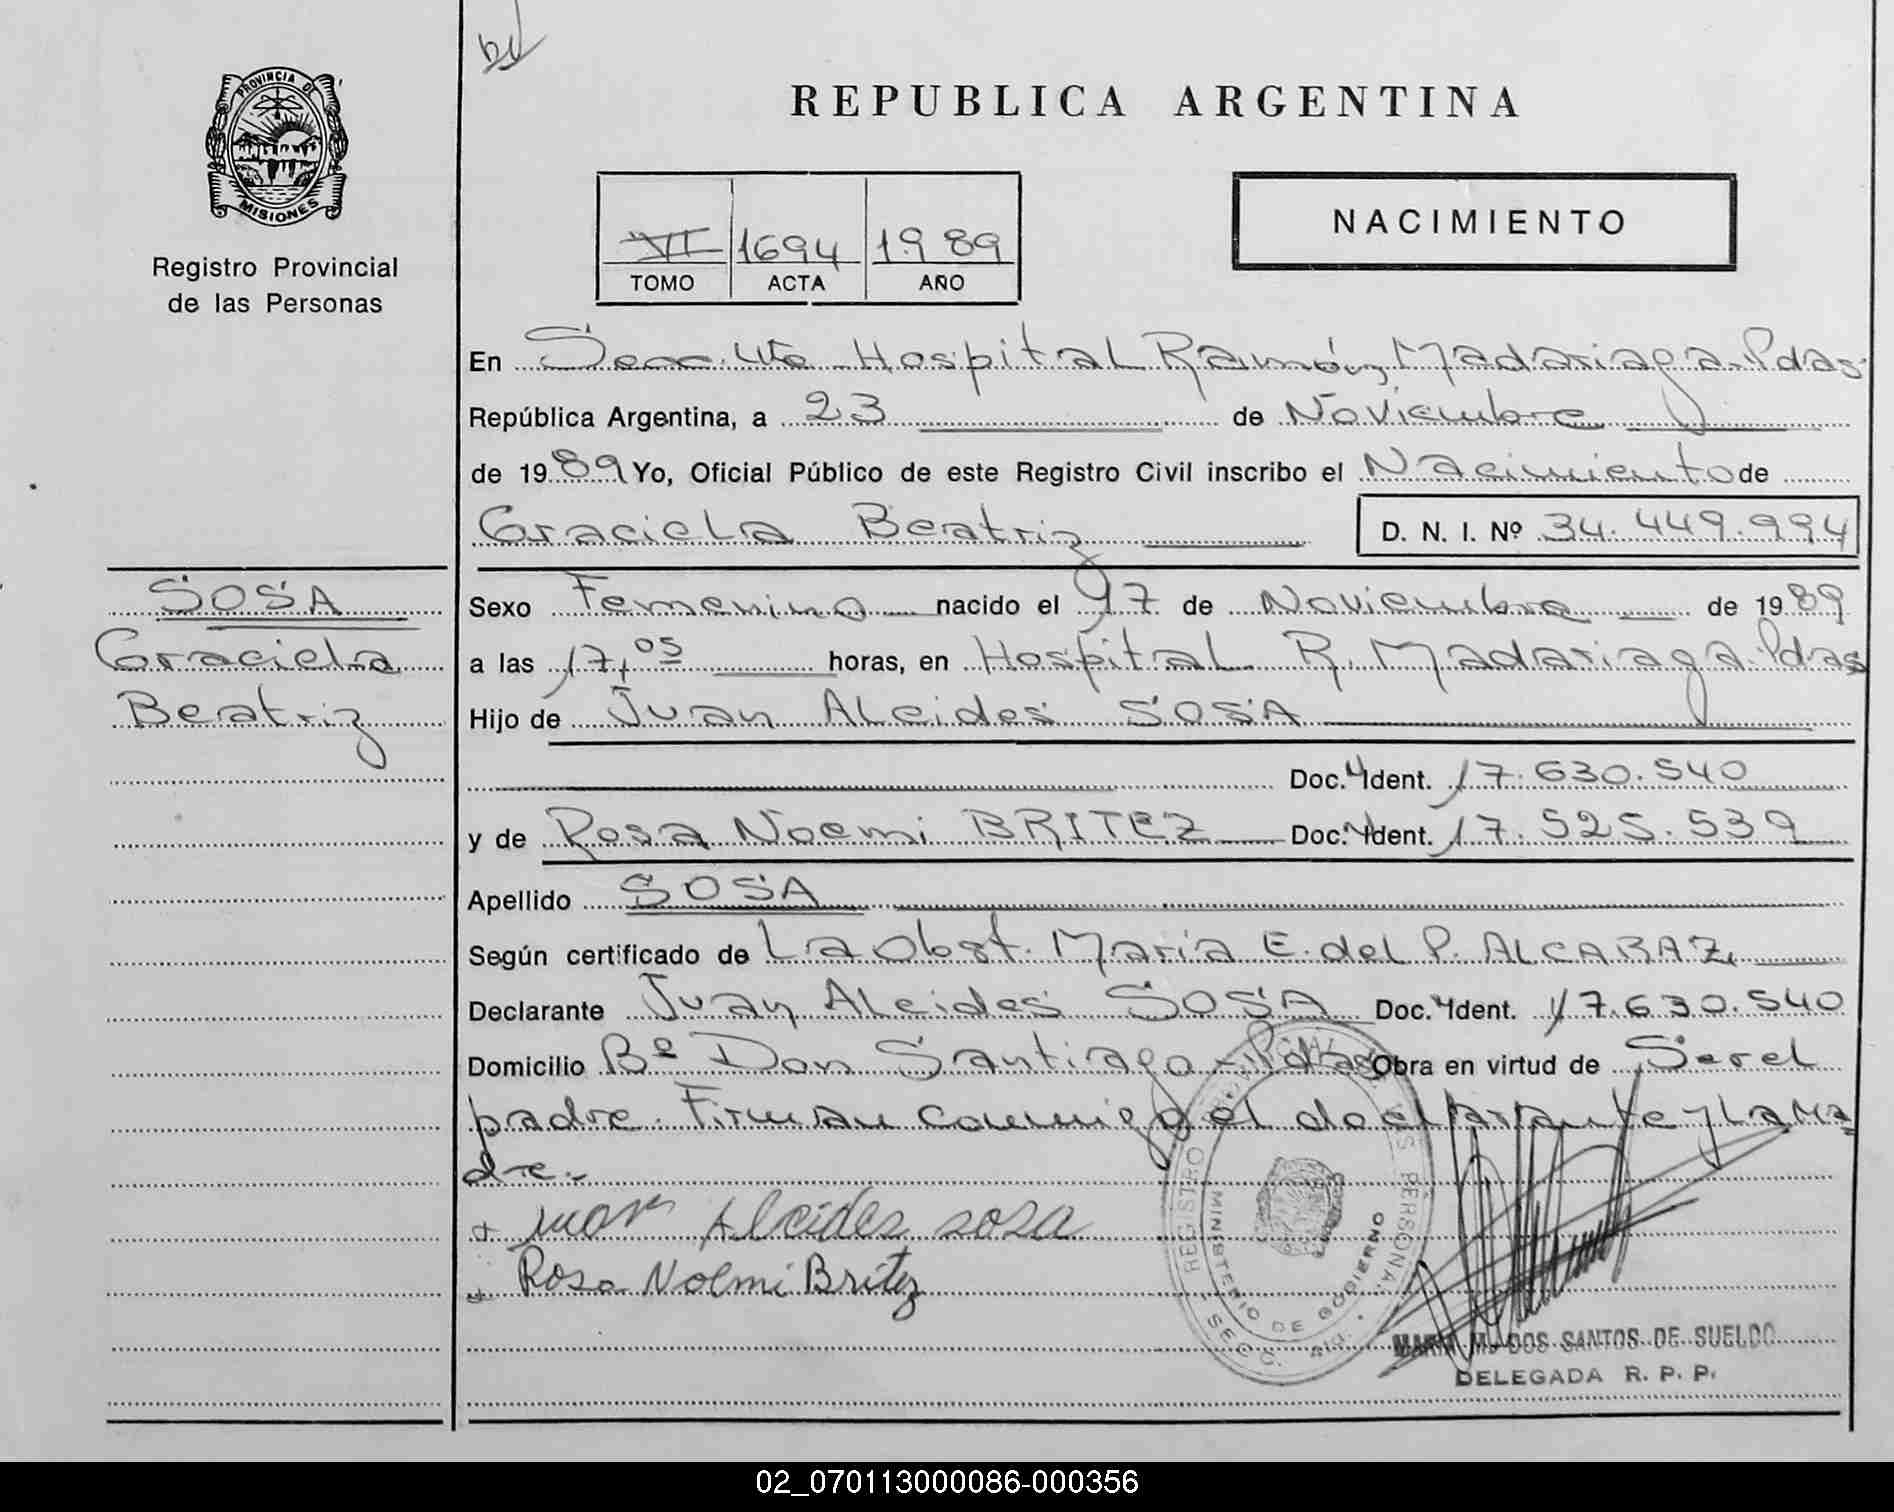 PROVINCIA DE
MISIONES
Registro Provincial
de las Personas
REPUBLICA ARGENTINA
NACIMIENTO
VI 1694 1989
TOMO ACTA AÑO
En Secc. 4ta Hospital Ramón Madariaga. Pdas.
República Argentina, a 23 de Noviembre
de 1989 Yo, Oficial Público de este Registro Civil inscribo el Nacimiento de
Graciela Beatriz D. N. I. Nº 34.449.994
SOSA
Graciela
Beatriz
Sexo Femenino nacido el 17 de Noviembre de 1989
a las 17,05 horas, en Hospital R. Madariaga. Pdas
Hijo de Juan Alcides SOSA
Doc. Ident. 17.630.540
y de Rosa Noemi BRITEZ Doc. Ident. 17.525.539
Apellido SOSA
Según certificado de La Obst. María E. del P. ALCARAZ
Declarante Juan Alcides SOSA Doc. Ident. 17.630.540
Domicilio Bº Don Santiago - Pdas Obra en virtud de Ser el
padre. Firman conmigo el declarante y La Ma-
dre.-
Alcides sosa
Rosa Noemi Britez
REGISTRO PROVINCIAL DE LAS PERSONAS
MINISTERIO DE GOBIERNO
SECC. 4ta.
MARIA M. DOS SANTOS DE SUELDO
DELEGADA R. P. P.
02_070113000086-000356